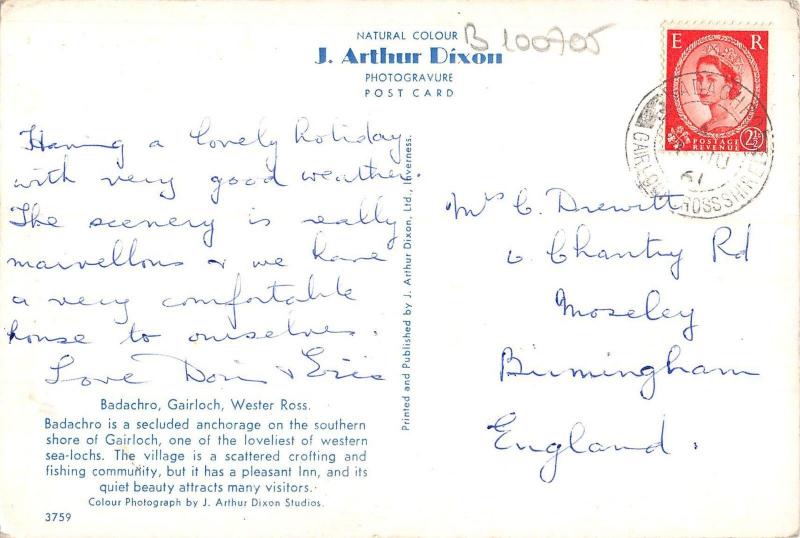 NATURAL COLOUR
J. Arthur Dixon
PHOTOGRAVURE
POST CARD
B 100705
E R
POSTAGE
REVENUE
2½D
GAIRLOCH ROSS-SHIRE
61
Having a lovely holiday
with very good weather.
The scenery is really
marvellous & we have
a very comfortable
house to ourselves.
Love Doris & Eric
Printed and Published by J. Arthur Dixon, Ltd., Inverness.
Mrs C. Drewitt
6 Chantry Rd
Moseley
Birmingham
England.
Badachro, Gairloch, Wester Ross.
Badachro is a secluded anchorage on the southern
shore of Gairloch, one of the loveliest of western
sea-lochs. The village is a scattered crofting and
fishing community, but it has a pleasant Inn, and its
quiet beauty attracts many visitors.
Colour Photograph by J. Arthur Dixon Studios.
3759